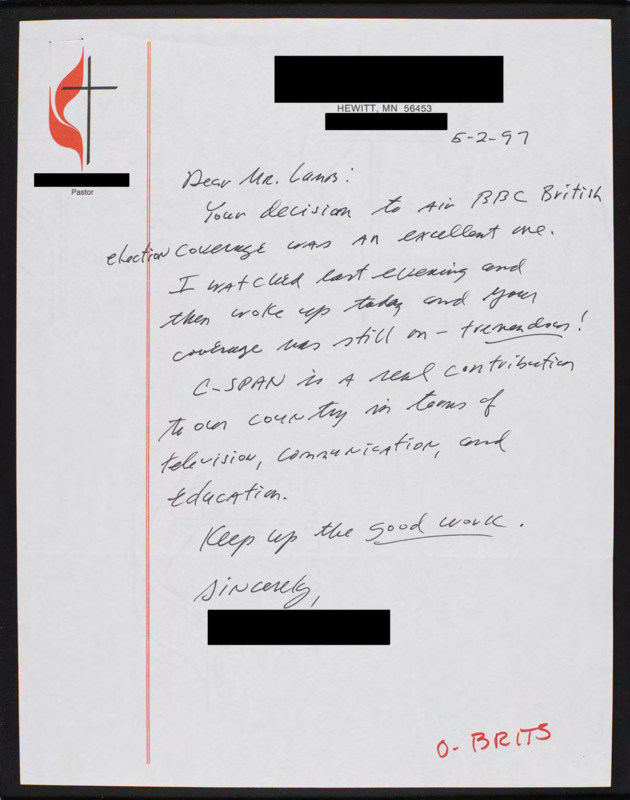 HEWITT, MN 56453
Pastor
5-2-97
Dear Mr. Lamb:
Your decision to air BBC British
election coverage was an excellent one.
I watched last evening and
then woke up today and your
coverage was still on - tremendous!
C-SPAN is a real contribution
to our country in terms of
television, communication, and
education.
Keep up the good work.
Sincerely,
O- BRITS